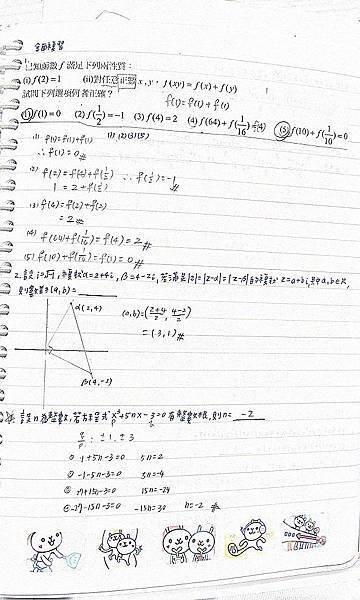 全面練習
已知函數 f 滿足下列兩性質:
(i) f(2)=1 (ii)對任意正數 x,y,f(xy)=f(x)+f(y)
f(1)=f(1)+f(1)
試問下列選項何者正確?
(1) f(1)=0 (2) f(1/2)=-1 (3) f(4)=2 (4) f(64)+f(1/16)=f(4) (5) f(10)+f(1/10)=0
(1) f(1)=f(1)+f(1) (1)(2)(3)(5)
∴f(1)=0#
(2) f(2)=f(4)+f(1/2) ∴f(1/2)=-1
1=2+f(1/2) #
(3) f(4)=f(2)+f(2)
=2#
(4) f(64)+f(1/16)=f(4)=2#
(5) f(10)+f(1/10)=f(1)=0#
2.設i=√-1,複數α=2+4i,β=4-2i,若滿足|z|=|z-α|=|z-β|的複數z=a+bi,其中a,b∈R,
則數對(a,b)=
α(2,4) (a,b)=(2+4/2, 4-2/2)
=(3,1)#
β(4,-2)
設n為整數,若方程式x³+5nx-3=0有整數根,則n= -2
q/p: ±1, ±3
① 1+5n-3=0 5n=2
② -1-5n-3=0 5n=-4
③ 27+15n-3=0 15n=-24
④ -27-15n-3=0 -15n=30 n=-2 #